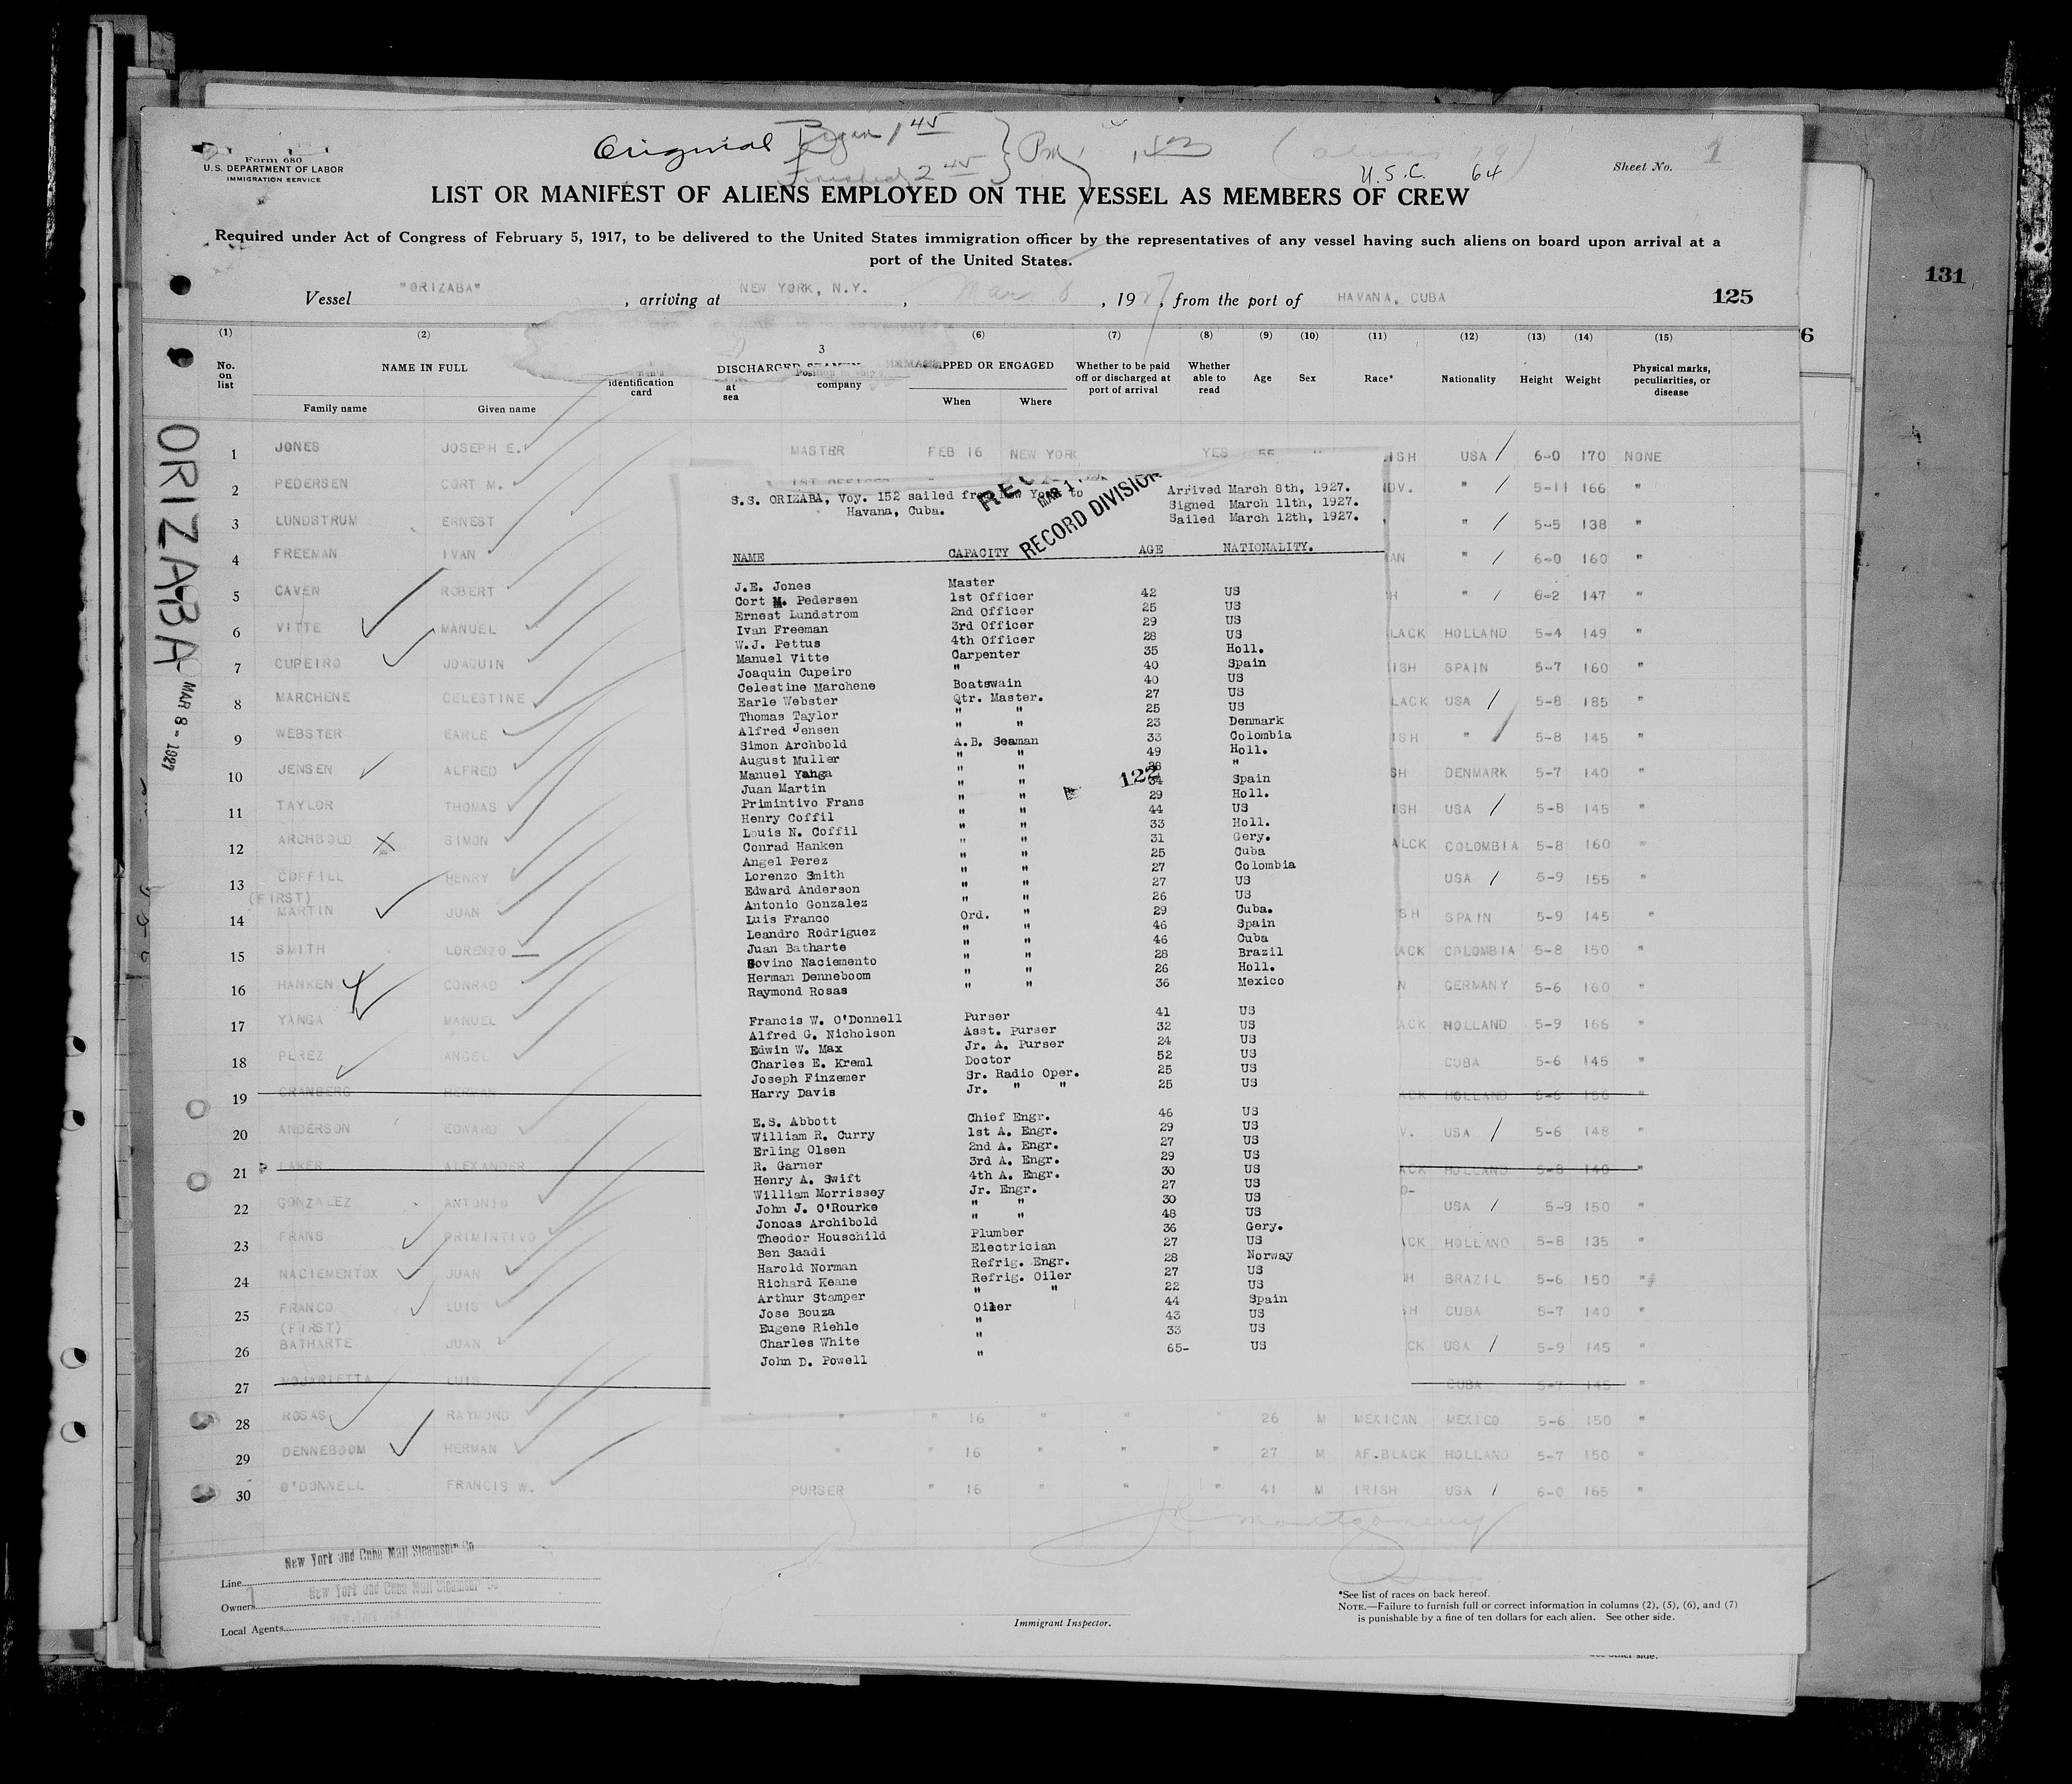 Original Began 1 45
Finished 2 45 Pm
Form 680
U.S. DEPARTMENT OF LABOR
IMMIGRATION SERVICE
(aliens 79)
U.S.C. 64
Sheet No. 1
LIST OR MANIFEST OF ALIENS EMPLOYED ON THE VESSEL AS MEMBERS OF CREW
Required under Act of Congress of February 5, 1917, to be delivered to the United States immigration officer by the representatives of any vessel having such aliens on board upon arrival at a
port of the United States.
Vessel "ORIZABA", arriving at NEW YORK, N.Y., Mar 8, 1927, from the port of HAVANA, CUBA
125
131
6
(1) (2) 3 (6) (7) (8) (9) (10) (11) (12) (13) (14) (15)
No. on list
NAME IN FULL
Family name Given name
identification card
DISCHARGED SEAMEN
at sea
company
SHIPPED OR ENGAGED
When Where
Whether to be paid off or discharged at port of arrival
Whether able to read
Age Sex Race* Nationality Height Weight
Physical marks, peculiarities, or disease
ORIZABA MAR 8 - 1927
1 JONES JOSEPH E. MASTER FEB 16 NEW YORK YES 55 ISH USA / 6-0 170 NONE
2 PEDERSEN CORT M. 1ST OFFICER OV. " / 5-11 166 "
3 LUNDSTRUM ERNEST " / 5-5 138 "
4 FREEMAN IVAN AN " / 6-0 160 "
5 CAVEN ROBERT H " / 6-2 147 "
6 VITTE MANUEL LACK HOLLAND 5-4 149 "
7 CUPEIRO JOAQUIN ISH SPAIN 5-7 160 "
8 MARCHENE CELESTINE LACK USA / 5-8 185 "
9 WEBSTER EARLE ISH " / 5-8 145 "
10 JENSEN ALFRED SH DENMARK 5-7 140 "
11 TAYLOR THOMAS ISH USA / 5-8 145 "
12 ARCHBOLD X SIMON ALCK COLOMBIA 5-8 160 "
13 COFFILL HENRY USA / 5-9 155 "
(FIRST)
14 MARTIN JUAN SH SPAIN 5-9 145 "
15 SMITH LORENZO ACK COLOMBIA 5-8 150 "
16 HANKEN CONRAD N GERMANY 5-6 160 "
17 YANGA MANUEL ACK HOLLAND 5-9 166 "
18 PEREZ ANGEL CUBA 5-6 145 "
19 CRANBERG HERMAN ACK HOLLAND 5-6 156 "
20 ANDERSON EDWARD V. USA / 5-6 148 "
21 LAKER ALEXANDER ACK HOLLAND 5-8 140 "
22 GONZALEZ ANTONIO O- USA / 5-9 150 "
23 FRANS PRIMINTIVO ACK HOLLAND 5-8 135 "
24 NACIEMENTOX JUAN H BRAZIL 5-6 150 "
25 FRANCO LUIS SH CUBA 5-7 140 "
(FIRST)
26 BATHARTE JUAN CK USA / 5-9 145 "
27 LUIS CUBA 5-7 145 "
28 ROSAS RAYMOND " " 16 " " " 26 M MEXICAN MEXICO 5-6 150 "
29 DENNEBOOM HERMAN " " 16 " " " 27 M AF.BLACK HOLLAND 5-7 150 "
30 O'DONNELL FRANCIS W. PURSER " 16 " " " 41 M IRISH USA / 6-0 165 "
S.S. ORIZABA, Voy. 152 sailed from New York to
Havana, Cuba.
REC
MAR 1
RECORD DIVISION
Arrived March 8th, 1927.
Signed March 11th, 1927.
Sailed March 12th, 1927.
NAME CAPACITY AGE NATIONALITY.
J.E. Jones Master
Cort M. Pedersen 1st Officer 42 US
Ernest Lundstrom 2nd Officer 25 US
Ivan Freeman 3rd Officer 29 US
W.J. Pettus 4th Officer 28 US
Manuel Vitte Carpenter 35 Holl.
Joaquin Cupeiro " 40 Spain
Celestine Marchene Boatswain 40 US
Earle Webster Qtr. Master. 27 US
Thomas Taylor " " 25 US
Alfred Jensen " " 23 Denmark
Simon Archbold A.B. Seaman 33 Colombia
August Muller " " 49 Holl.
Manuel Yanga " " 38 "
Juan Martin " " 34 Spain
122
Primintivo Frans " " 29 Holl.
Henry Coffil " " 44 US
Louis N. Coffil " " 33 Holl.
Conrad Hanken " " 31 Gery.
Angel Perez " " 25 Cuba
Lorenzo Smith " " 27 Colombia
Edward Anderson " " 27 US
Antonio Gonzalez " " 26 US
Luis Franco Ord. " 29 Cuba.
Leandro Rodriguez " " 46 Spain
Juan Batharte " " 46 Cuba
Sovino Naciemento " " 28 Brazil
Herman Denneboom " " 26 Holl.
Raymond Rosas " " 36 Mexico
Francis W. O'Donnell Purser 41 US
Alfred G. Nicholson Asst. Purser 32 US
Edwin W. Max Jr. A. Purser 24 US
Charles E. Kreml Doctor 52 US
Joseph Finzemer Sr. Radio Oper. 25 US
Harry Davis Jr. " " 25 US
E.S. Abbott Chief Engr. 46 US
William R. Curry 1st A. Engr. 29 US
Erling Olsen 2nd A. Engr. 27 US
R. Garner 3rd A. Engr. 29 US
Henry A. Swift 4th A. Engr. 30 US
William Morrissey Jr. Engr. 27 US
John J. O'Rourke " " 30 US
Joncas Archibold " " 48 US
Theodor Houschild Plumber 36 Gery.
Ben Saadi Electrician 27 US
Harold Norman Refrig. Engr. 28 Norway
Richard Keane Refrig. Oiler 27 US
Arthur Stamper " " 22 US
Jose Bouza Oiler 44 Spain
Eugene Riehle " 43 US
Charles White " 33 US
John D. Powell " 65- US
Montgomery
Line New York and Cuba Mail Steamship Co
Owners New York and Cuba Mail Steamship Co
Local Agents
Immigrant Inspector.
*See list of races on back hereof.
NOTE.—Failure to furnish full or correct information in columns (2), (5), (6), and (7)
is punishable by a fine of ten dollars for each alien. See other side.
See other side.